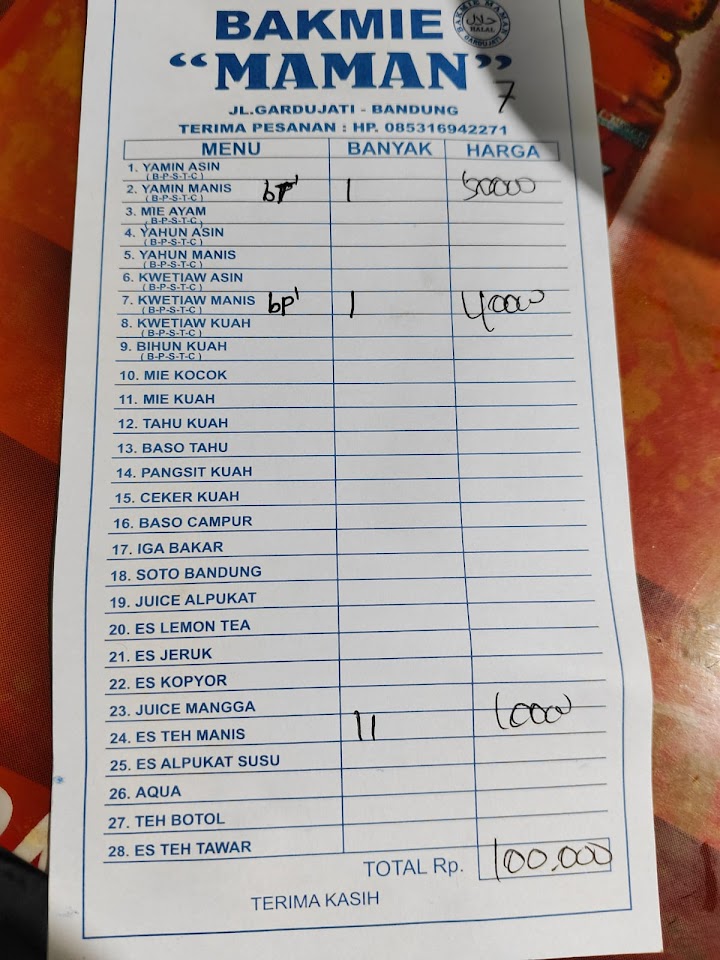 BAKMIE
BAKMIE MAMAN
HALAL
GARDUJATI
“MAMAN”
7
JL.GARDUJATI - BANDUNG
TERIMA PESANAN : HP. 085316942271
MENU BANYAK HARGA
1. YAMIN ASIN
( B-P-S-T-C )
2. YAMIN MANIS bp' 1 50000
( B-P-S-T-C )
3. MIE AYAM
( B-P-S-T-C )
4. YAHUN ASIN
( B-P-S-T-C )
5. YAHUN MANIS
( B-P-S-T-C )
6. KWETIAW ASIN
( B-P-S-T-C )
7. KWETIAW MANIS bp' 1 40000
( B-P-S-T-C )
8. KWETIAW KUAH
( B-P-S-T-C )
9. BIHUN KUAH
( B-P-S-T-C )
10. MIE KOCOK
11. MIE KUAH
12. TAHU KUAH
13. BASO TAHU
14. PANGSIT KUAH
15. CEKER KUAH
16. BASO CAMPUR
17. IGA BAKAR
18. SOTO BANDUNG
19. JUICE ALPUKAT
20. ES LEMON TEA
21. ES JERUK
22. ES KOPYOR
23. JUICE MANGGA
24. ES TEH MANIS 11 10000
25. ES ALPUKAT SUSU
26. AQUA
27. TEH BOTOL
28. ES TEH TAWAR
TOTAL Rp. 100.000
TERIMA KASIH